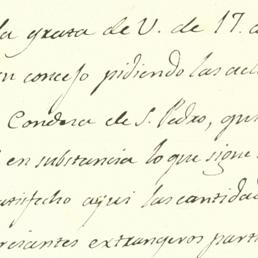 la grata de V. de 17. d
un concejo pidiendo las acl
Condesa de S. Pedro, que
en substancia lo que sigue
satisfecho aqui las cantidad
erciantes extrangeros parti